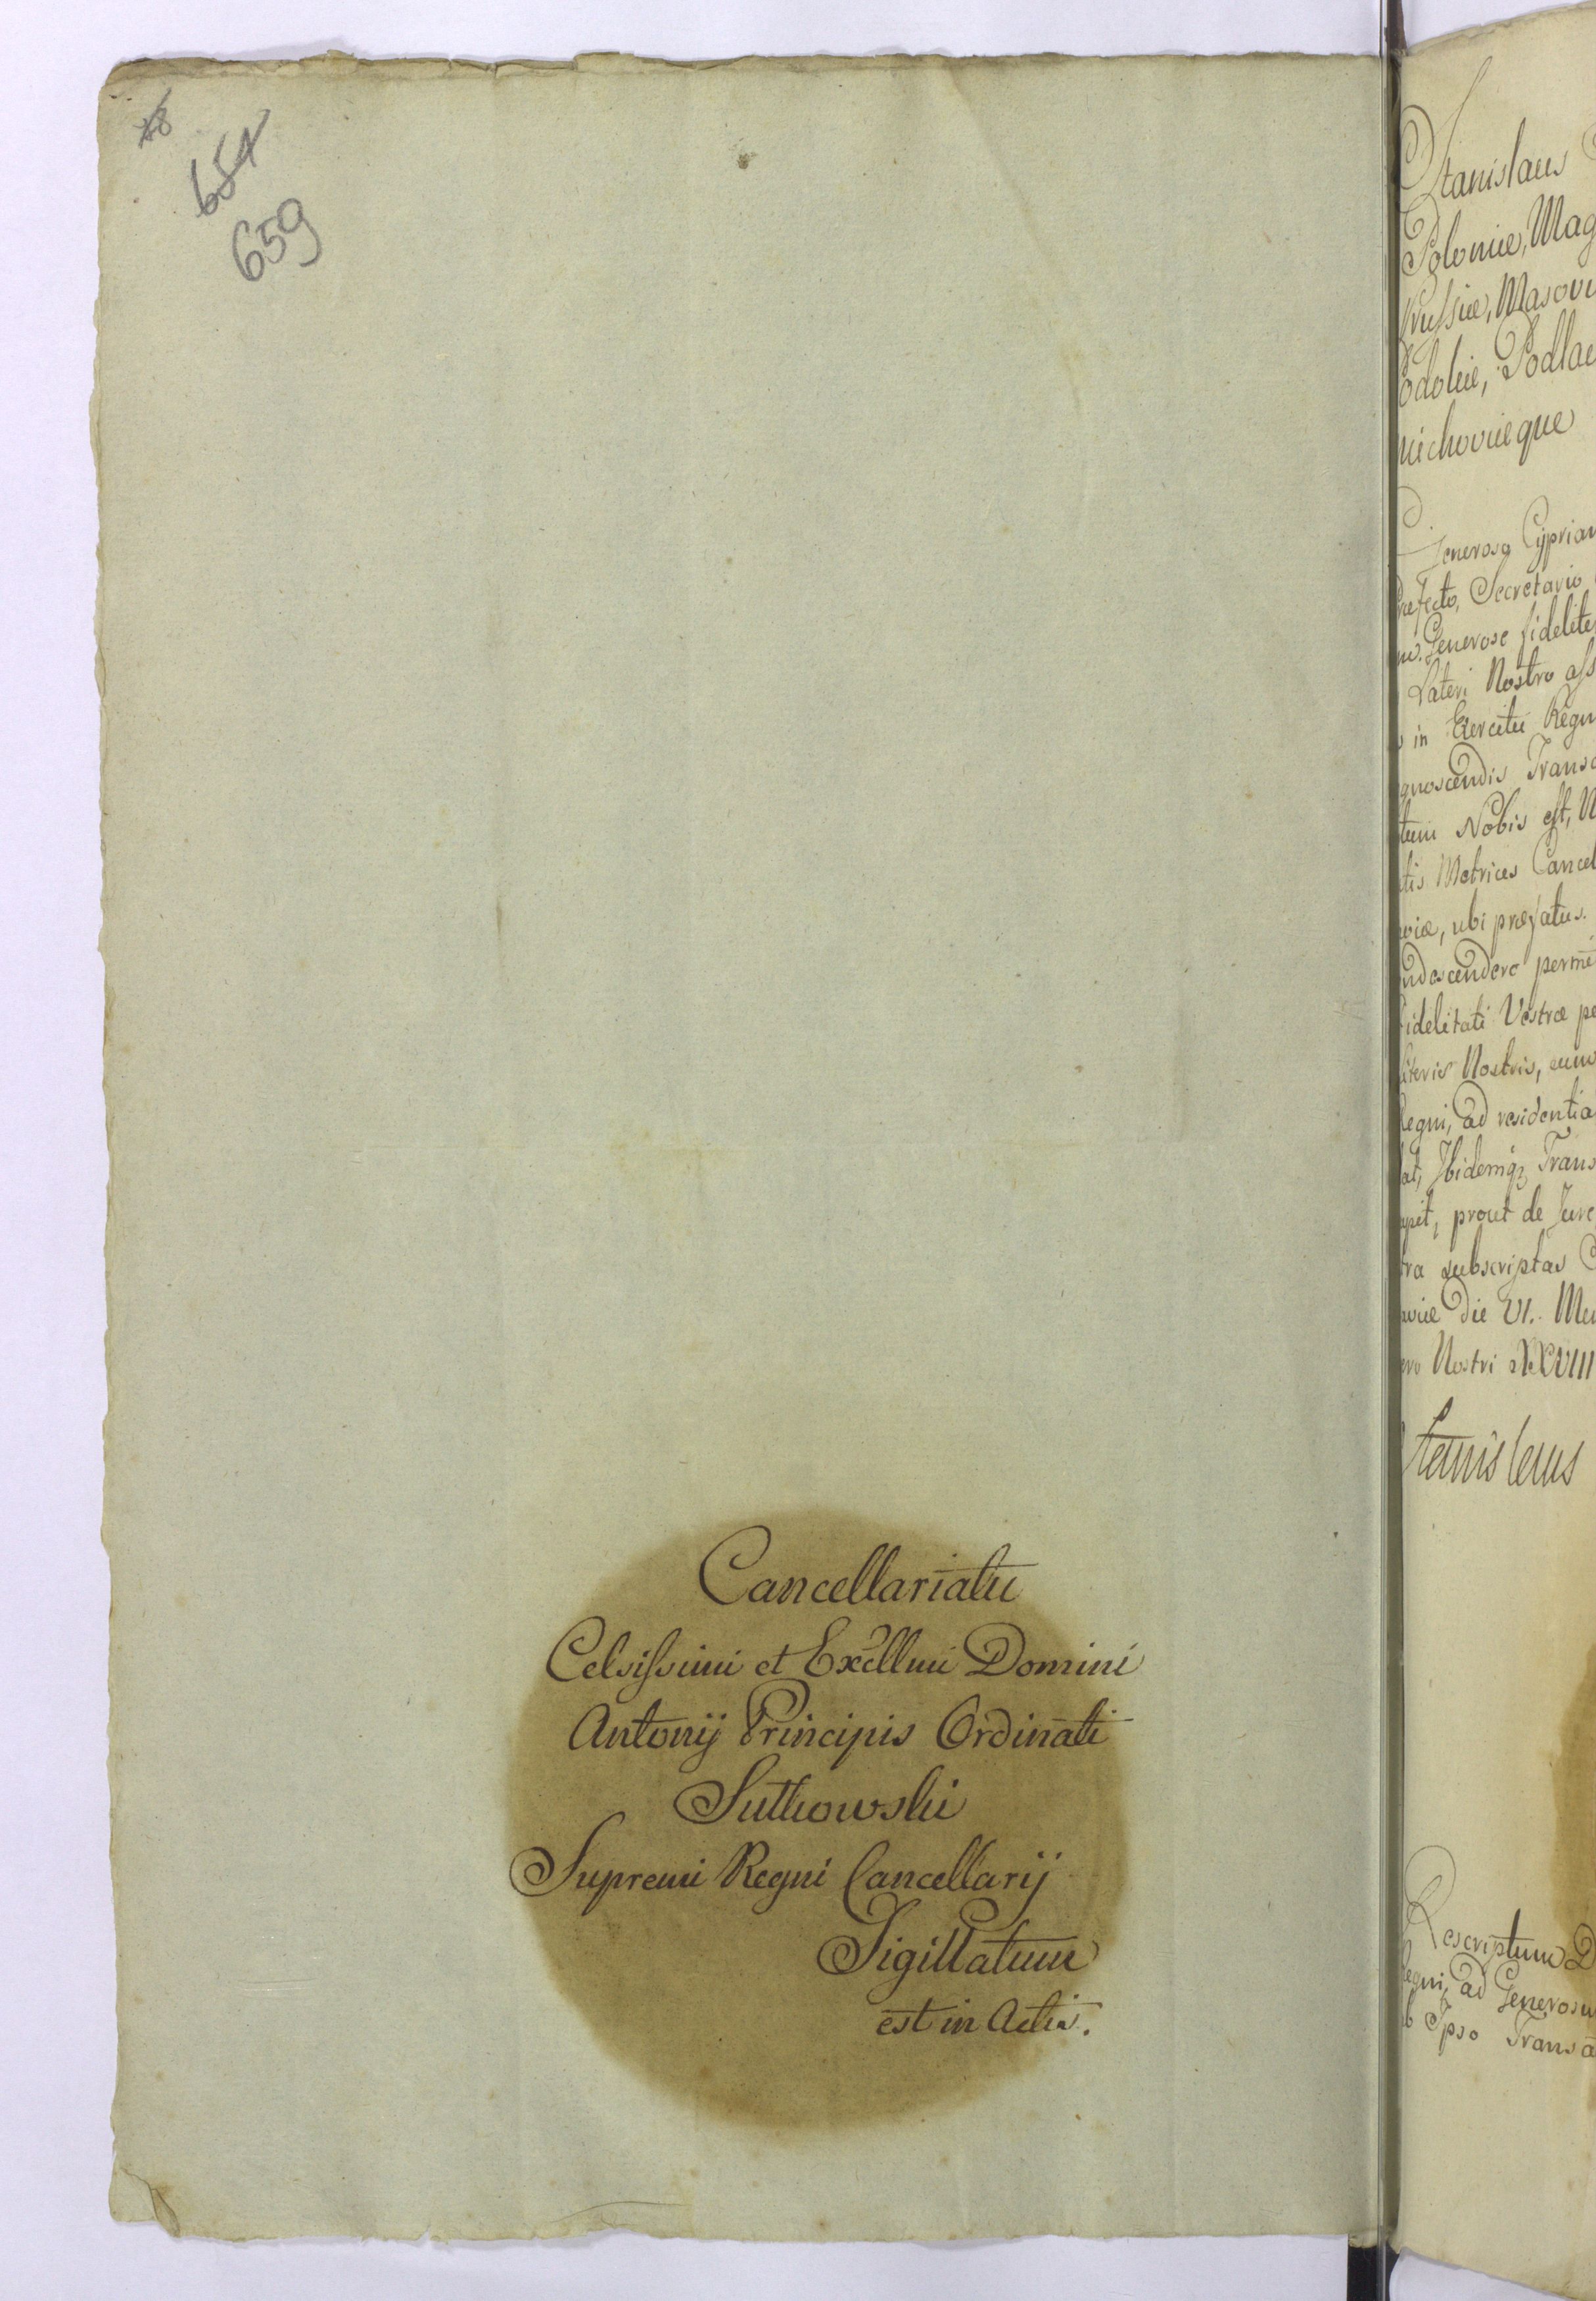 48
654
659
Cancellariatu
Celsissimi et Excellmi Domini
Antonij Principis Ordinati
Sutkowski
Supremi Regni Cancellarij
Sigillatum
est in Actis.
Stanislaus
Poloniæ, Mag
Prussiæ, Masovi
odoliæ, Podlac
niechoviæque
Generoso Cyprian
ræfecto, Secretario
Generose fidelite
Lateri Nostro ass
in Exercitu Regn
gnoscendis Transa
tum Nobis est, U
tis Metrices Cancel
viæ, ubi præfatus.
ndescendere perme
idelitati Vestræ pe
iteris Nostris, eum
Regni, ad residentia
at, Ibidemq Trans
prout de Jure
ra subscriptas
viæ Die VI. Men
ero Nostri XXVIII
Stanislaus
Rescriptum D
Regni, ad Generosu
b Ipso Transa